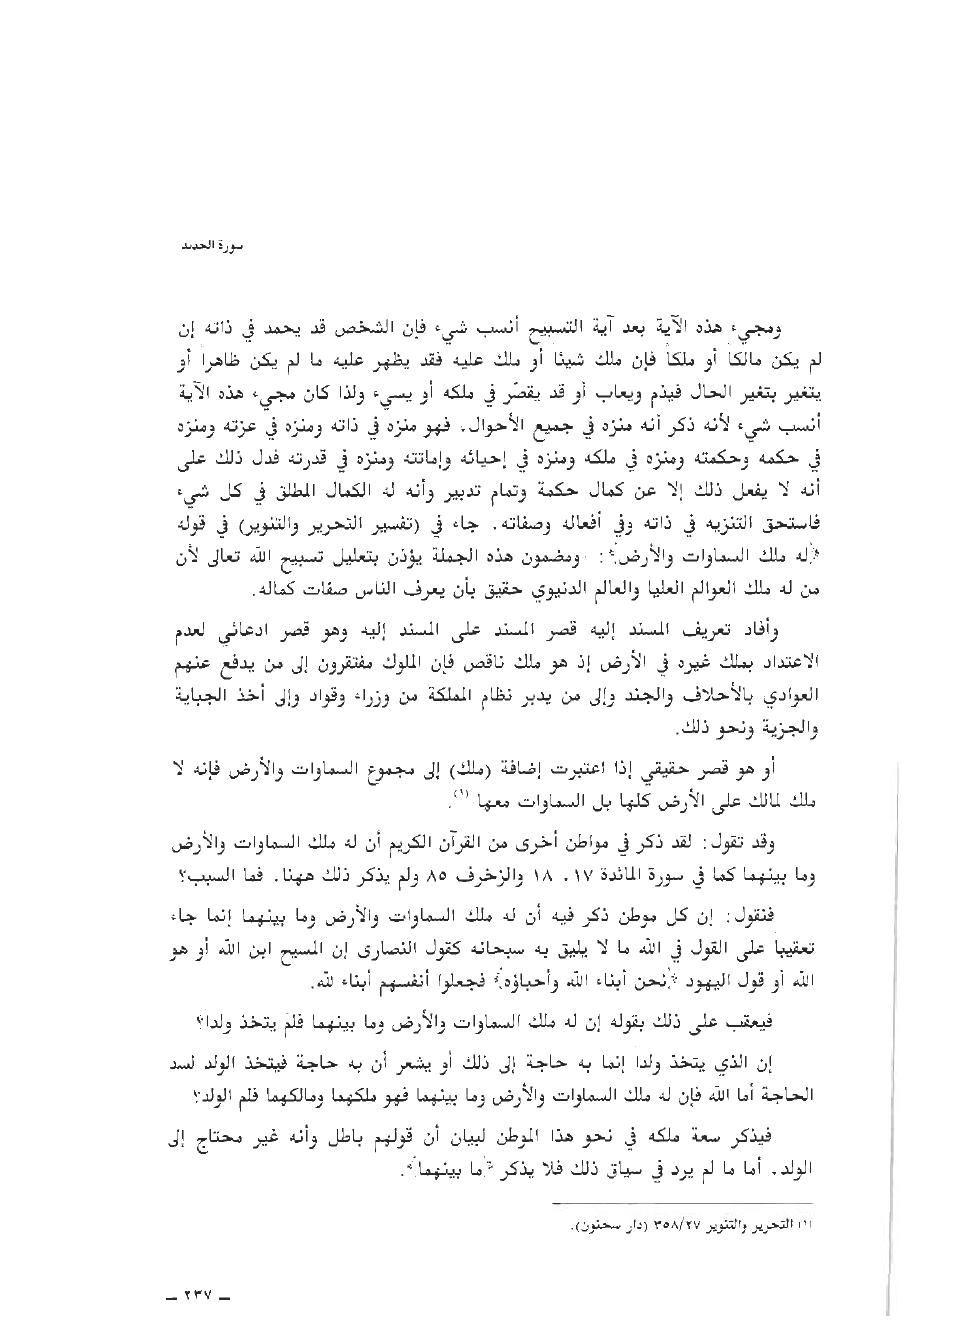 سورة الحديد
ومجيء هذه الآية بعد آية التسبيح أنسب شيء فإن الشخص قد يحمد في ذاته إن
لم يكن مالكا أو ملكاً فإن ملك شيئا أو ملك عليه فقد يظهر عليه ما لم يكن ظاهراً أو
يتغير بتغير الحال فيذم ويعاب أو قد يقصّر في ملكه أو يسيء ولذا كان مجيء هذه الآية
أنسب شيء لأنه ذكر أنه منزه في جميع الأحوال. فهو منزه في ذاته ومنزه في عزته ومنزه
في حكمه وحكمته ومنزه في ملكه ومنزه في إحيائه وإماتته ومنزه في قدرته فدل ذلك على
أنه لا يفعل ذلك إلا عن كمال حكمة وتمام تدبير وأنه له الكمال المطلق في كل شيء
فاستحق التنزيه في ذاته وفي أفعاله وصفاته. جاء في (تفسير التحرير والتنوير) في قوله
﴿له ملك السماوات والأرض﴾: ومضمون هذه الجملة يؤذن بتعليل تسبيح الله تعالى لأن
من له ملك العوالم العليا والعالم الدنيوي حقيق بأن يعرف الناس صفات كماله.
وأفاد تعريف المسند إليه قصر المسند على المسند إليه وهو قصر ادعائي لعدم
الاعتداد بملك غيره في الأرض إذ هو ملك ناقص فإن الملوك مفتقرون إلى من يدفع عنهم
العوادي بالأحلاف والجند وإلى من يدبر نظام المملكة من وزراء وقواد وإلى أخذ الجباية
والجزية ونحو ذلك.
أو هو قصر حقيقي إذا اعتبرت إضافة (ملك) إلى مجموع السماوات والأرض فإنه لا
ملك لمالك على الأرض كلها بل السماوات معها (١).
وقد تقول: لقد ذكر في مواطن أخرى من القرآن الكريم أن له ملك السماوات والأرض
وما بينهما كما في سورة المائدة ١٧، ١٨ والزخرف ٨٥ ولم يذكر ذلك ههنا. فما السبب؟
فنقول: إن كل موطن ذكر فيه أن له ملك السماوات والأرض وما بينهما إنما جاء
تعقيبا على القول في الله ما لا يليق به سبحانه كقول النصارى إن المسيح ابن الله أو هو
الله أو قول اليهود ﴿نحن أبناء الله وأحباؤه﴾ فجعلوا أنفسهم أبناء لله.
فيعقب على ذلك بقوله إن له ملك السماوات والأرض وما بينهما فلم يتخذ ولدا؟
إن الذي يتخذ ولدا إنما به حاجة إلى ذلك أو يشعر أن به حاجة فيتخذ الولد لسد
الحاجة أما الله فإن له ملك السماوات والأرض وما بينهما فهو ملكهما ومالكهما فلم الولد؟
فيذكر سعة ملكه في نحو هذا الموطن لبيان أن قولهم باطل وأنه غير محتاج إلى
الولد. أما ما لم يرد في سياق ذلك فلا يذكر ﴿ما بينهما﴾.
(١) التحرير والتنوير ٢٧/٣٥٨ (دار سحنون).
– ٢٣٧ –